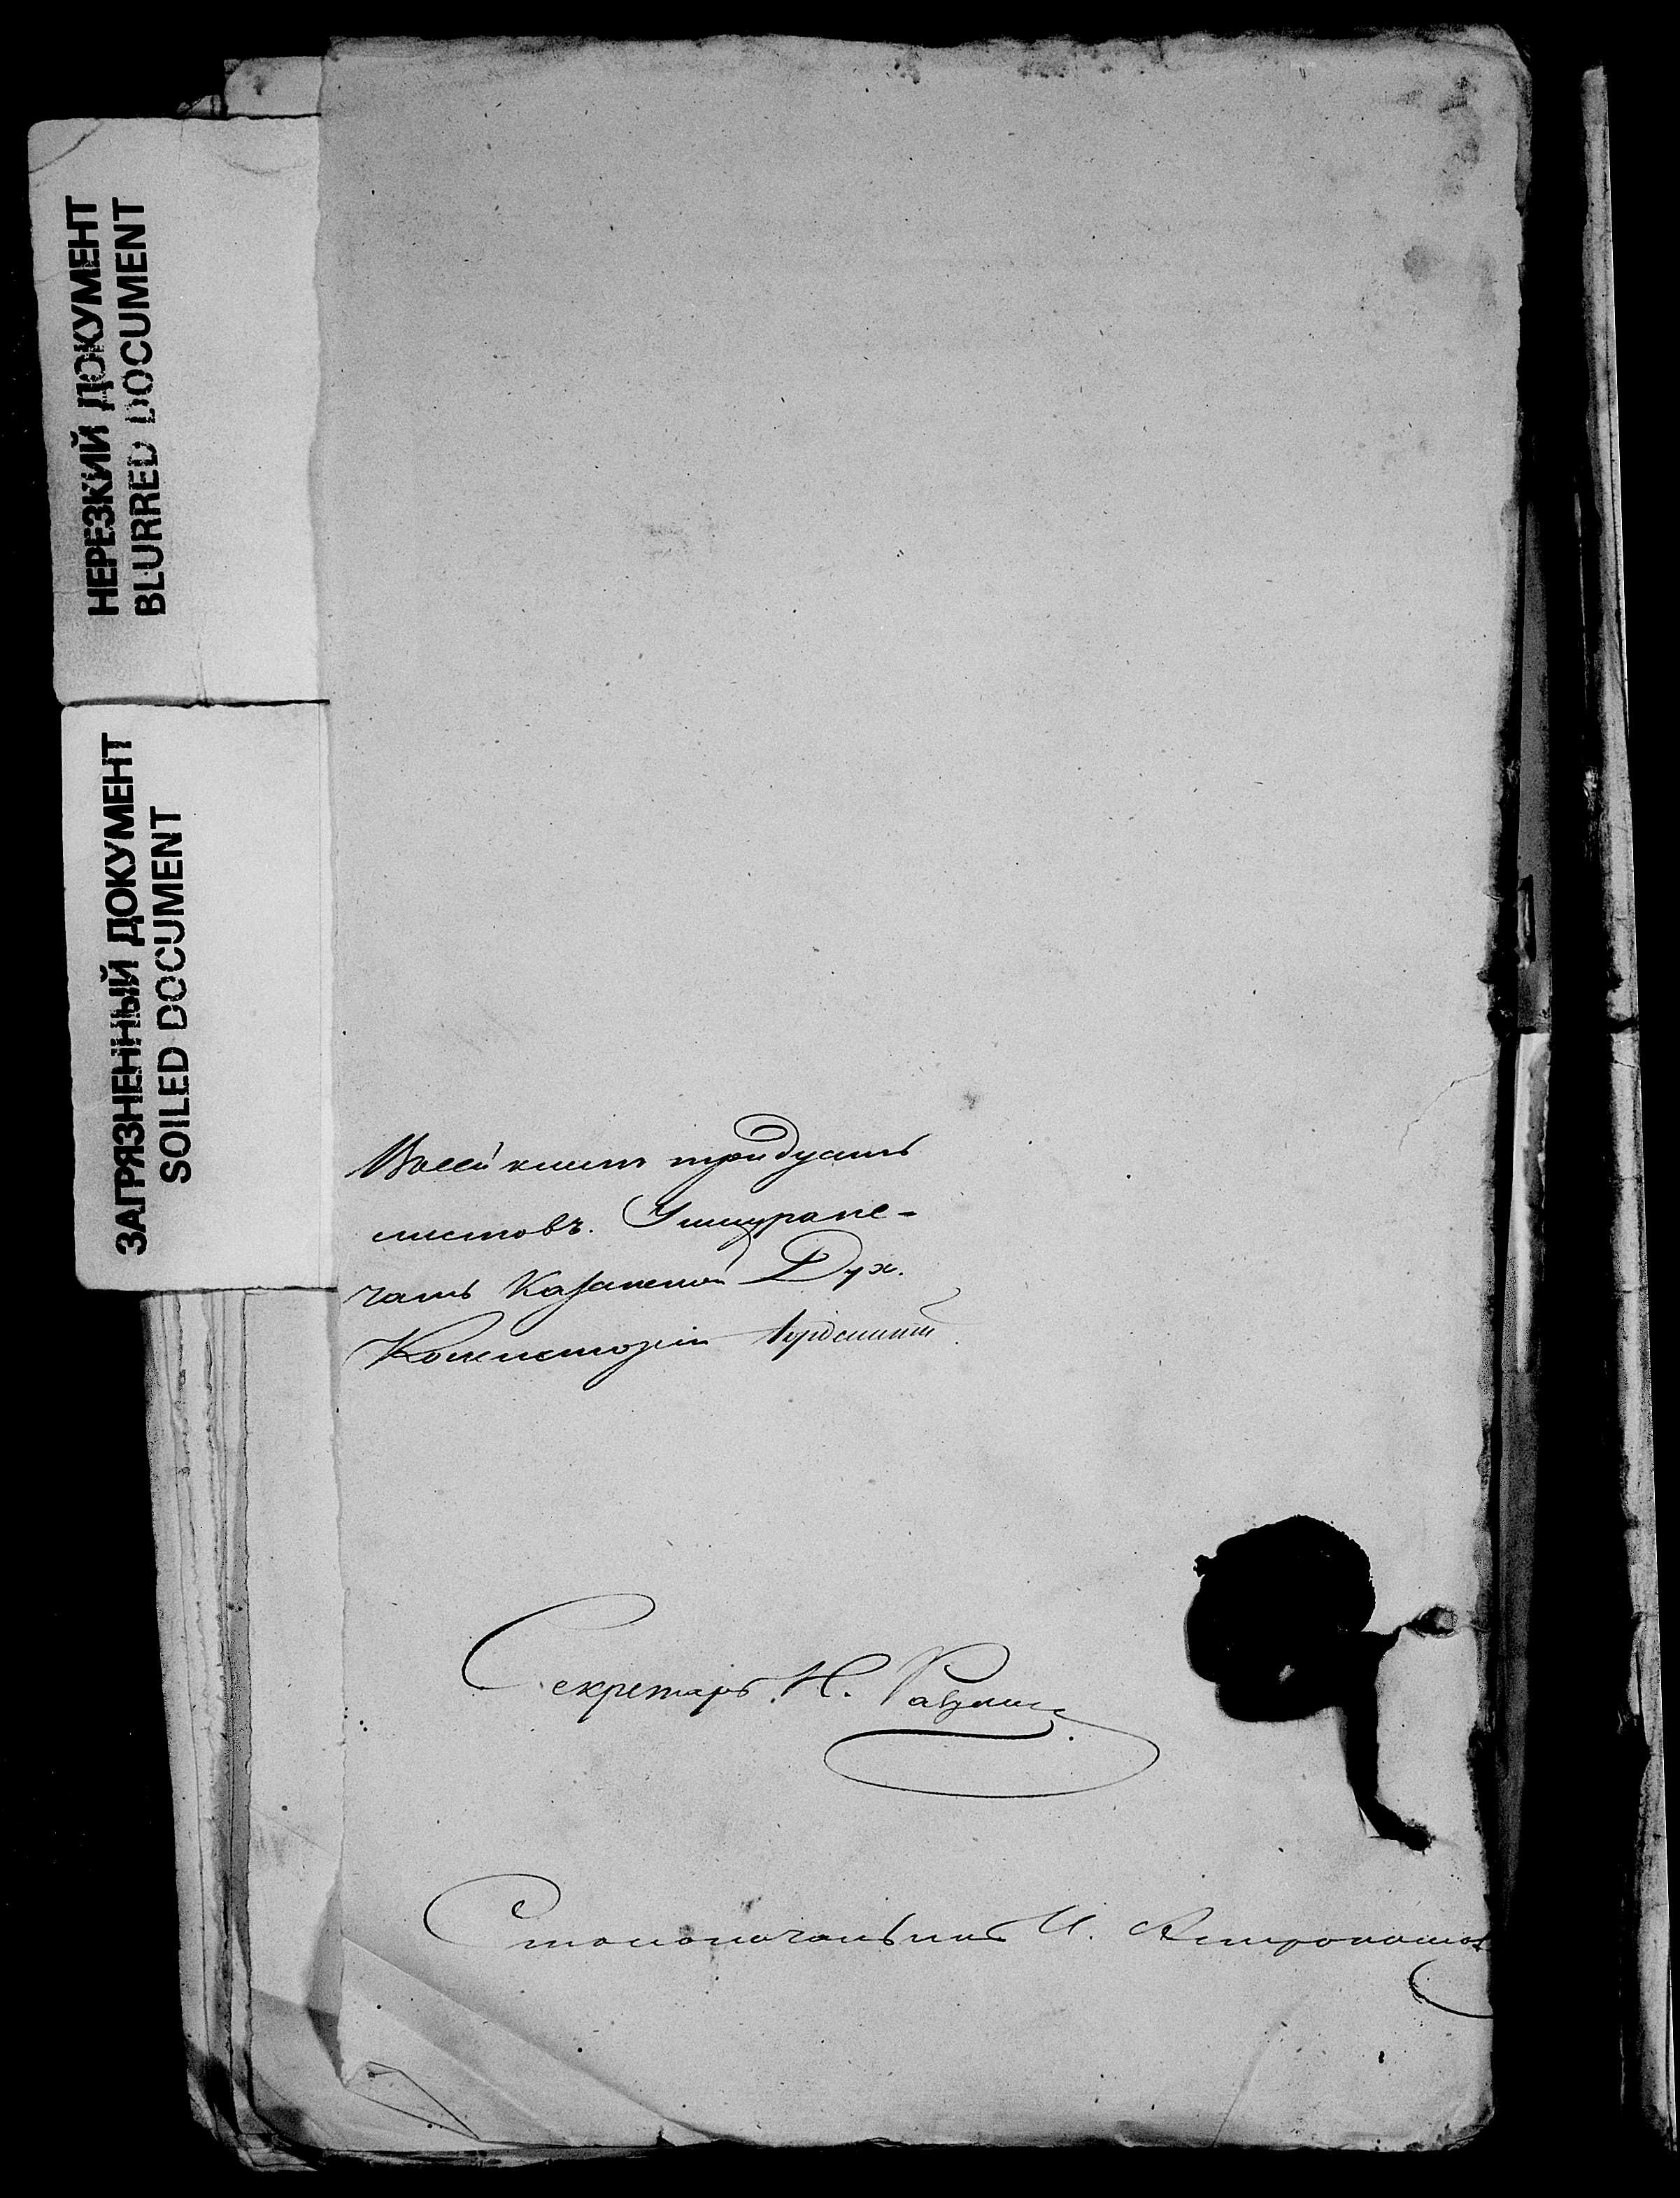 НЕРЕЗКИЙ ДОКУМЕНТ
BLURRED DOCUMENT
ЗАГРЯЗНЕННЫЙ ДОКУМЕНТ
SOILED DOCUMENT
Въ сей книгѣ тридцать
листовъ. У шнура пе-
чать Казанской Дух.
Консисторіи
Секретарь Н.
Столоначальникъ И.